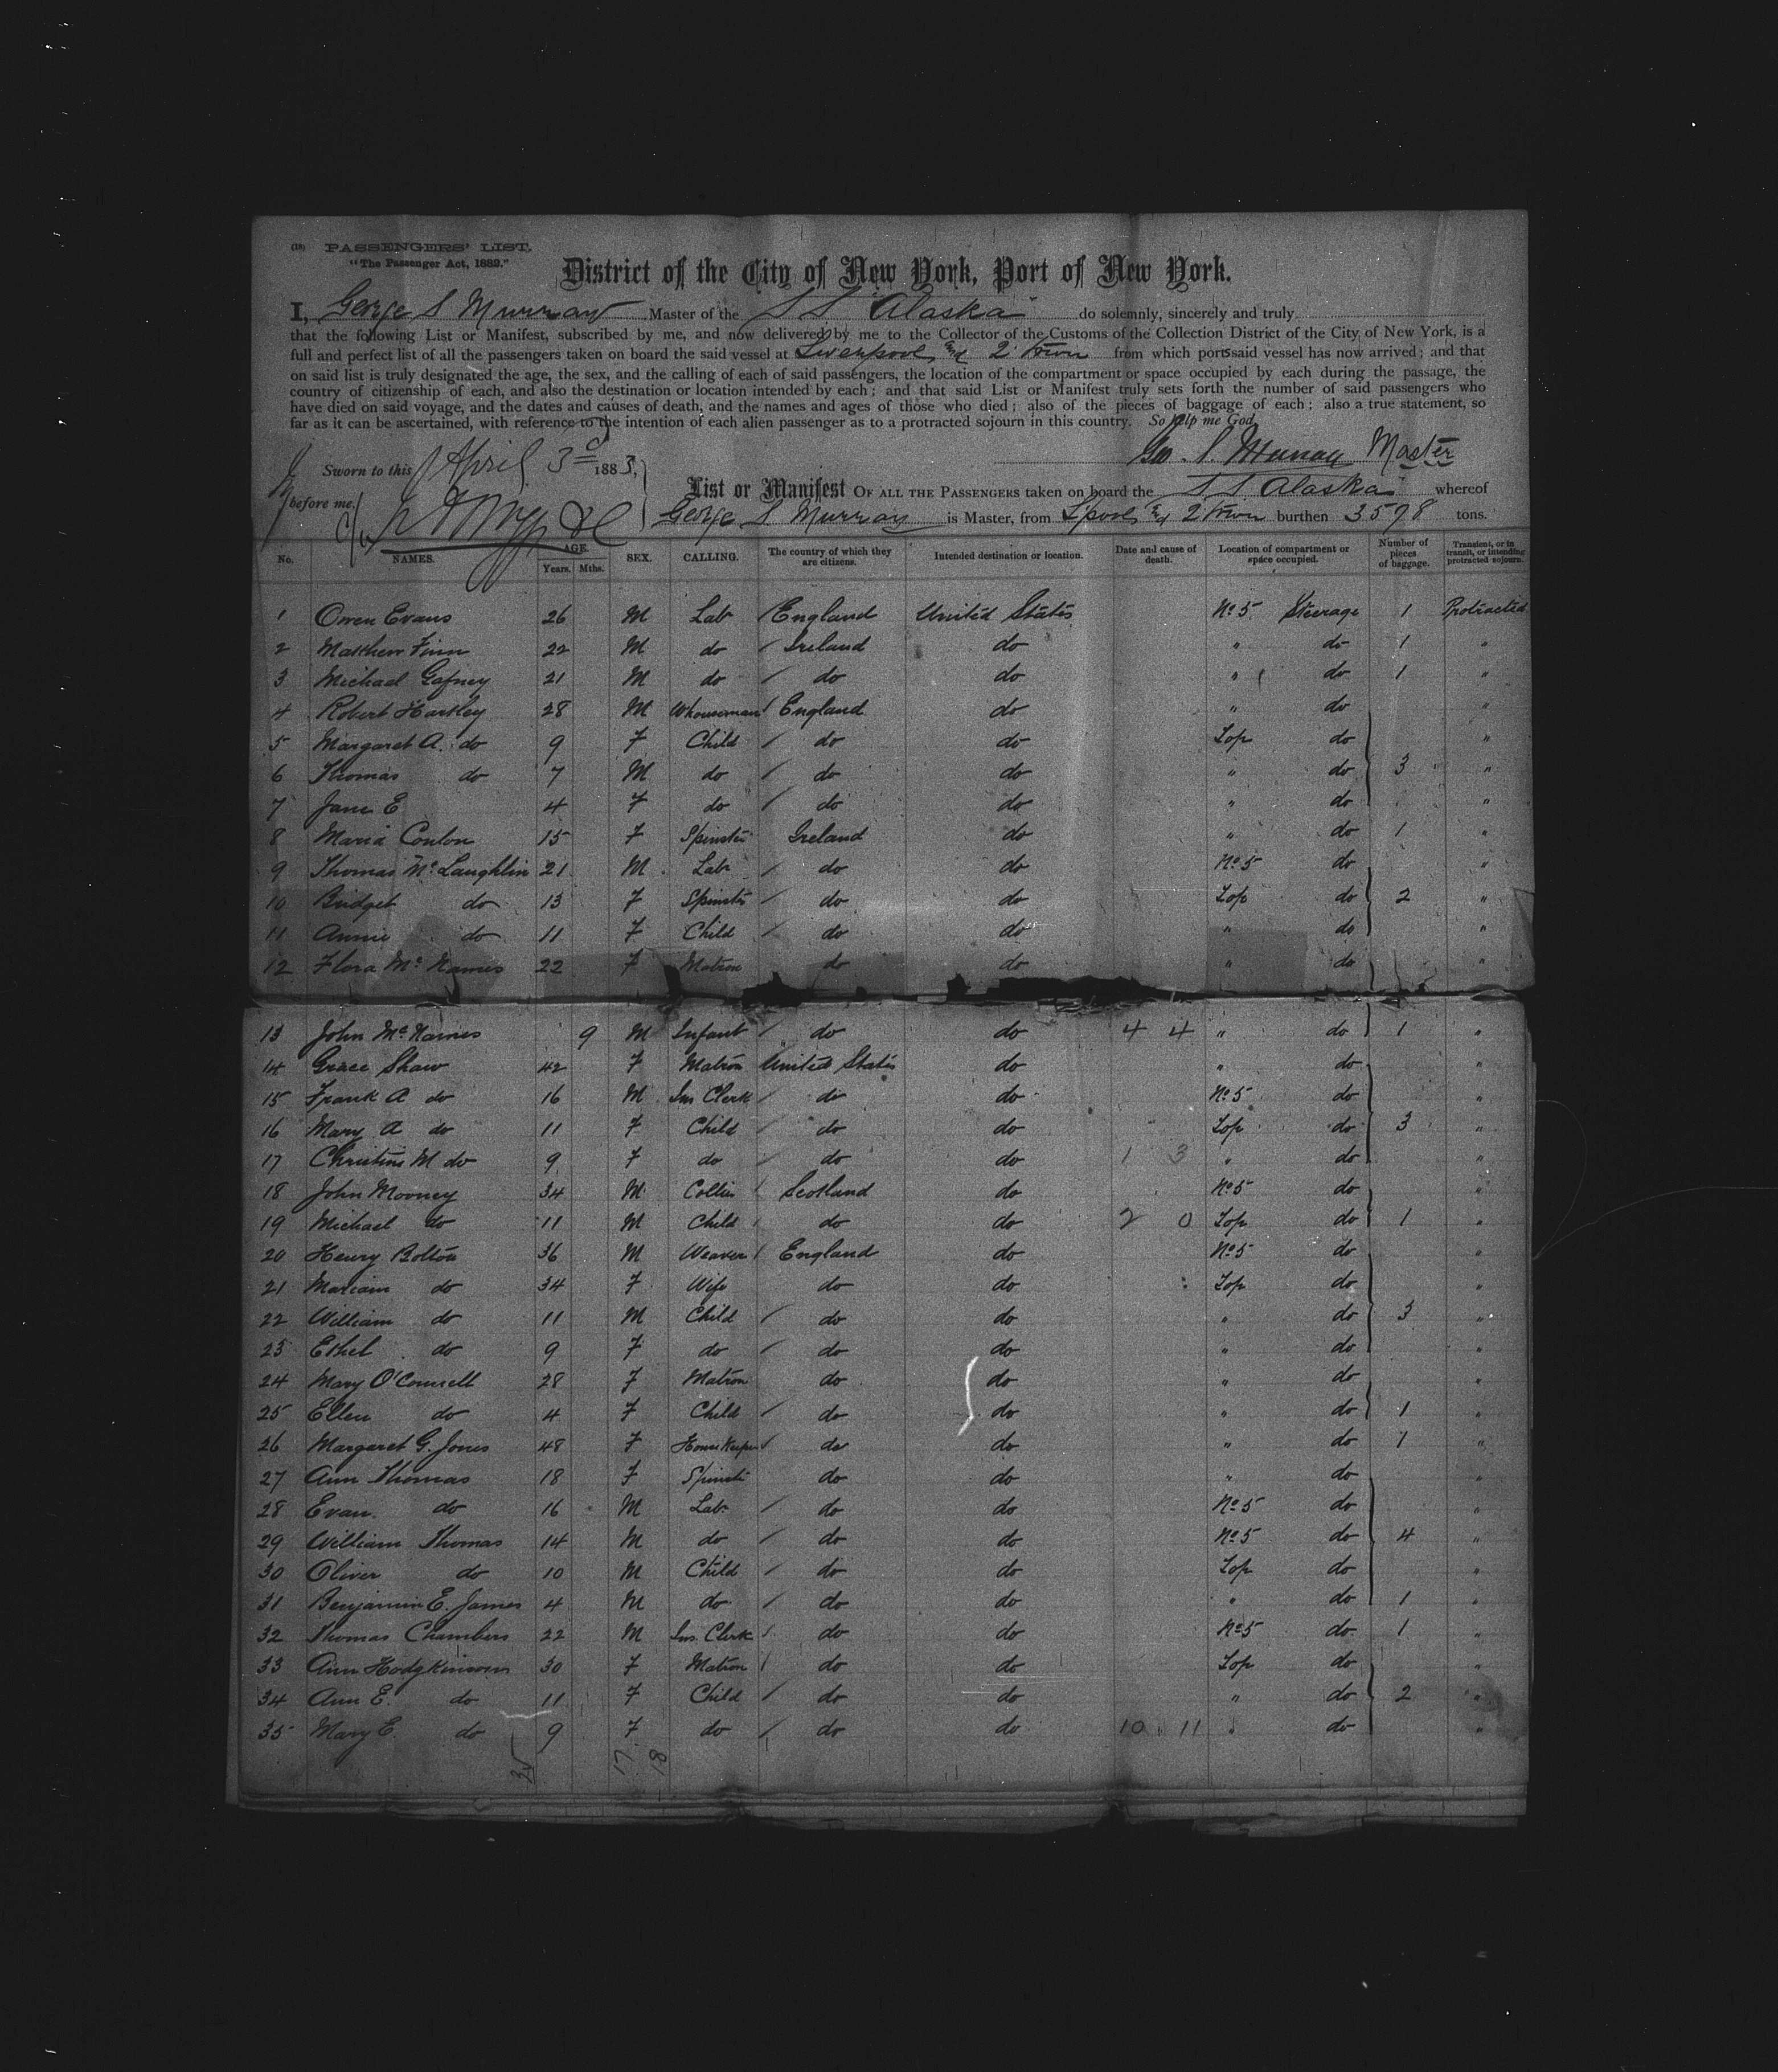 (18) PASSENGERS' LIST.
"The Passenger Act, 1882."
District of the City of New York, Port of New York.
I, George S Murray Master of the SS "Alaska" do solemnly, sincerely and truly
that the following List or Manifest, subscribed by me, and now delivered by me to the Collector of the Customs of the Collection District of the City of New York, is a
full and perfect list of all the passengers taken on board the said vessel at Liverpool and Q. town from which ports said vessel has now arrived; and that
on said list is truly designated the age, the sex, and the calling of each of said passengers, the location of the compartment or space occupied by each during the passage, the
country of citizenship of each, and also the destination or location intended by each; and that said List or Manifest truly sets forth the number of said passengers who
have died on said voyage, and the dates and causes of death, and the names and ages of those who died; also of the pieces of baggage of each; also a true statement, so
far as it can be ascertained, with reference to the intention of each alien passenger as to a protracted sojourn in this country. So help me God
Geo. S. Murray Master
Sworn to this April 3rd 1883,
before me,
List or Manifest OF ALL THE PASSENGERS taken on board the SS Alaska whereof
George S Murray is Master, from L'pool and Q town burthen 3578 tons.
No. NAMES. AGE. Years. Mths. SEX. CALLING. The country of which they are citizens. Intended destination or location. Date and cause of death. Location of compartment or space occupied. Number of pieces of baggage. Transient, or in transit, or intending protracted sojourn.
1 Owen Evans 26 M Lab England United States No 5 Steerage 1 Protracted
2 Matthew Finn 22 M do Ireland do " do 1 "
3 Michael Gafney 21 M do do do " do 1 "
4 Robert Hartley 28 M Whouseman England do " do "
5 Margaret A. do 9 F Child do do Top do "
6 Thomas do 7 M do do do " do 3 "
7 Jane E 4 F do do do " do "
8 Maria Conlon 15 F Spinstr Ireland do " do 1 "
9 Thomas McLaughlin 21 M Lab do do No 5 do "
10 Bridget do 13 F Spinstr do do Top do 2 "
11 Annie do 11 F Child do do " do "
12 Flora McNames 22 F Matron do do " do "
13 John McNames 9 M Infant do do 4 4 " do 1 "
14 Grace Shaw 42 F Matron United States do " do "
15 Frank A do 16 M Ins Clerk do do No 5 do "
16 Mary A do 11 F Child do do Top do 3 "
17 Christine M do 9 F do do do 1 3 " do "
18 John Mooney 34 M Collier Scotland do No 5 do "
19 Michael do 11 M Child do do 2 0 Top do 1 "
20 Henry Bolton 36 M Weaver England do No 5 do "
21 Mariam do 34 F Wife do do Top do "
22 William do 11 M Child do do " do 3 "
23 Ethel do 9 F do do do " do "
24 Mary O'Connell 28 F Matron do do " do "
25 Ellen do 4 F Child do do " do 1 "
26 Margaret G. Jones 48 F House Keeper do do " do 1 "
27 Ann Thomas 18 F Spinstr do do " do "
28 Evan do 16 M Lab. do do No 5 do "
29 William Thomas 14 M do do do No 5 do 4 "
30 Oliver do 10 M Child do do Top do "
31 Benjamin E. James 4 M do do do " do 1 "
32 Thomas Chambers 22 M Ins. Clerk do do No 5 do 1 "
33 Ann Hodgkinson 30 F Matron do do Top do "
34 Ann E. do 11 F Child do do " do 2 "
35 Mary E. do 9 F do do do 10 11 " do "
35 17 18